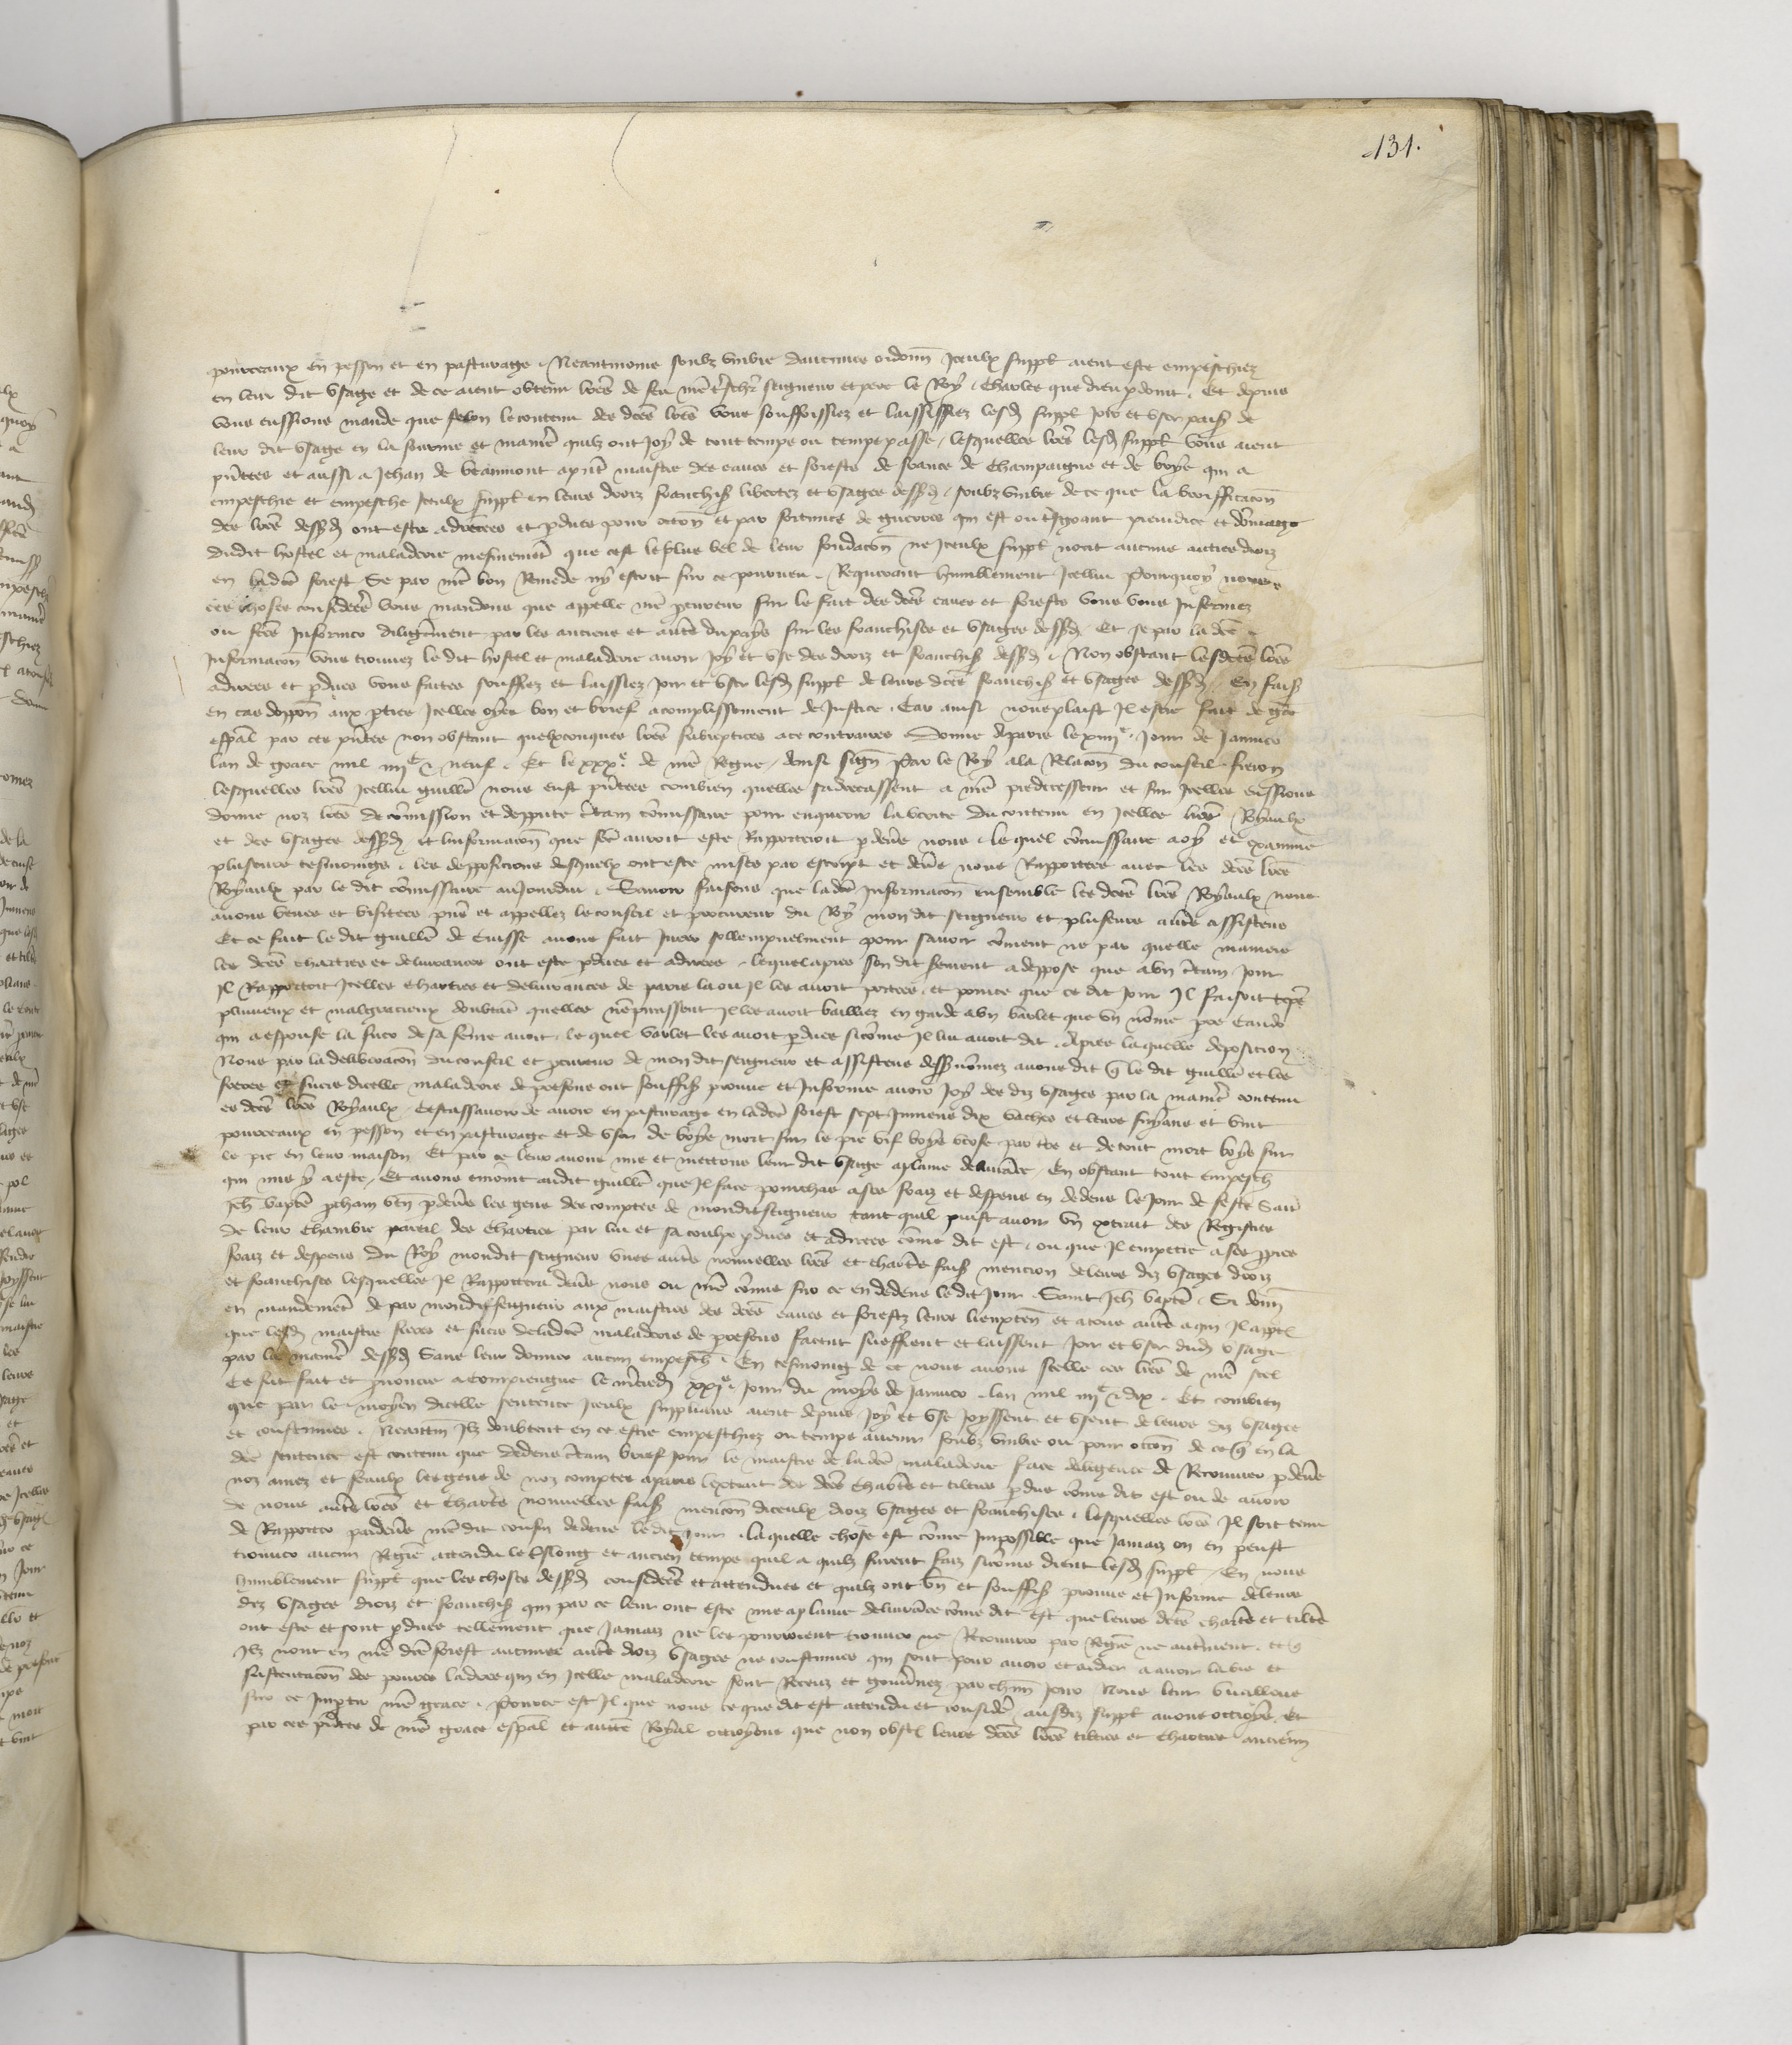 131.
pourceaux en pesson et en pasturage. Neantmoins soubz umbre daucunes ordonn Iceulx suppl aient este empeschiez
en leur dit usage et de ce aient obtenu lres de feu nre treschr seigneur et pere le Roy Charles que dieu pdoint. Et depuis
vous eussions mande que selon le contenu des dces lres vous souffrissiez et laississiez lesd suppl joir et user paisib de
leur dit usage en la fourme et maniere quilz ont joy de tout temps ou temps passe, lesquelles lres lesd suppl vous aient
pntees et aussi a Jehan de beaumont apnt maistre des eaues et forests de france de Champaigne et de brye qui a
empeschie et empesche Iceulx suppl en leurs droiz franchis libertez et usages dessd, soubz umbre de ce que la verifficacon
des lres dessd ont este adirees et pdues pour occon et par fortunes de guerres qui est ou tsgrant preiudice et dommage
dudit hostel et maladerie mesmement que cest le plus bel de leur fondacon ne Iceulx suppl nont aucuns autres droiz
en ladce forest Se par nre bon Remede ny estoit sur ce pourveu. Requerant humblement Icellui Pourquoy nous
ces choses considerees vous mandons que appelle nre pcureur sur le fait des dces eaues et forests vous vous Informez
ou fces Informer diligemment par les anciens et autres du pays sur les franchises et usages dessd. Et se par la dce
Informacon vous trouvez le dit hostel et maladerie avoir joy et use des droiz et franchis dessd. Non obstant lesdces lres
adirees et pdues vous faites souffrez et laissiez joir et user lesd suppl de leurs dces franchis et usages dessd En fais
en cas doppon aux pties Icelles oyes bon et brief acomplissement de Justice. Car ainsi nous plaist Il estre fait de gce
espal par ces pntes non obstant quelxconques lres subreptices a ce contraires. Donne a paris le xiiiie Jour de Janvier
lan de grace mil iiiic & neuf. Et le xxxe de nre Regne, ainsi sign Par le Roy ala Relacon du conseil freron
lesquelles lres Icellui guille nous eust pntees combien quelles sadrecassent a nre predecesseur et sur Icelles eussions
donne noz lres de comission et deppute ctain comissaire pour enquerir la verite du contenu en Icelles lres Royaulx
et des usages dessd et linformacon que fce auroit este Rapporteroit pdevs nous. Le quel comissaire a oy et examine
pluseurs tesmoings. Les depposicions desquelx ont este mises par escript et devs nous Rapportees avec les dces lres
Royaulx par le dit comissaire aujourdui. Savoir faisons que ladce Informacon ensemble les dces lres Royaulx nous
avons veues et visitees pns et appellez le conseil et procureur du Roy mon dit seigneur et pluseurs autres assistens
Et ce fait le dit guille de Cuisse avons fait jurer sollempnelment pour savoir coment ne par quelle maniere
les dces chartres et delivrances ont este pdues et adirees. lequel apres son dit serment a deppose que a un ctain jour
Il Rapportoit Icelles chartres et delivrances de paris la ou Il les avoit portees, et pource que ce dit jour Il faisoit teps
pluvieux et malgracieux doubtat quelles nempirassent Il les avoit baillees en garde a un varlet que un nomme
qui a espouse la suer de sa feme avoit. le quel varlet les avoit pdues sicome Il lui avoit dit. Apres laquelle deposicion
Nous par la deliberacon du conseil et pcureur de mon dit seigneur et assistens dessusnomez avons dit q le dit guille et les
freres et suers dicelle maladerie de presens ont souffis prouve et Informe avoir joy des diz usages par la maniere contenu
es dces lres Royaulx. Cestassavoir de avoir en pasturage en ladce forest sept Jumens dix vaches et leurs suyans et vint
pourceaux en pesson et en pasturage et de user de boys mort sur le pie vif boys verse par tre et de tout mort boys sur
le pie en leur maison. Et par ce leur avons mis et mettons leur dit usage a plaine delivrance. En obstant tout empesch
qui mis y a este. Et avons enjoint audit guille que Il face pourchas a ses fraiz et despens en dedens le jour de feste Saint
Jeh baptiste pcham ven pdevs les gens des comptes de mondit seigneur tant quil puist avoir un extrait des Registres
de leur chambre pareil des chartres par lui et sa coulpe pdues et adirees come dit est, ou que Il empetre a ses ppres
fraiz et despens du Roy mondit seigneur unes autres nouvelles lres et chartes fais mencion de leurs diz usages droiz
et franchises lesquelles Il Rapportera devs nous ou nre comis sur ce en dedens le dit jour Saint Jeh baptiste. Si donn
en mandement de par mondit seigneur aux maistres des dces eaues et forestz leurs lieuxten et a tous autres a qui Il apptl
que lesd maistre freres et suers de ladce maladerie de presens facent sueffrent et laissent joir et user dud usage
par la maniere dessd Sans leur donner aucun empesch. En tesmoing de ce nous avons seelle ces lres de nre seel
Ce fut fait et pnoncie a Compiengne le mercredi xxie jour du moys de Janvier. lan mil iiiic & dix. Et combien
que par le moyen dicelle sentence Iceulx supplians aient depuis joy et use joyssent et usent de leurs diz usages
et coustumes. Neantm Ilz doubtent en ce estre empeschiez ou temps avenir soubz umbre ou pour occon de ce q en la
dce sentence est contenu que dedens ctain brief jour le maistre de la dce maladerie face diligence de Recouvrer pdevs
noz amez et feaulx les gens de noz comptes a paris lextrait des dces chartes et tiltres pdus come dit est ou de avoir
de nous autres lres et chartes nouvelles fais mencon diceulx droiz usages et franchises. lesquelles lres Il soit tenu
de Rapporter pardevs nre dit cousin dedens le dit jour. la quelle chose est come Impossible que Jamaiz on en peust
trouver aucun Regre attendu le treslong et ancien temps quil a quilz furent faiz sicome dient lesd suppl. En nous
humblement suppl que les choses dessd considerees et attendues et quilz ont bn et souffis prouve et Informe de leurs
diz usages droiz et franchis qui par ce leur ont este mis a plaine delivrance come dit est que leurs dces chartes et tiltres
ont este et sont pdues tellement que Jamaiz ne les pourroient trouver ne Recouvrer par Regre ne autrement. et q
Ilz nont en nre dce forest aucuns autres droiz usages ne coustumes qui sont pour avoir et aidier a avoir la vie et
sustentacon des povres ladres qui en Icelle maladerie sont Receuz et gouvnez par chun jour Nous leur vueillons
sur ce Impartir nre grace. Pource est Il que nous ce que dit est attendu et consider, ausdiz suppl avons octroye Et
par ces pntes de nre grace espal et auttes Royal octroyons que non obst leurs dces lres tiltres et chartres anciens